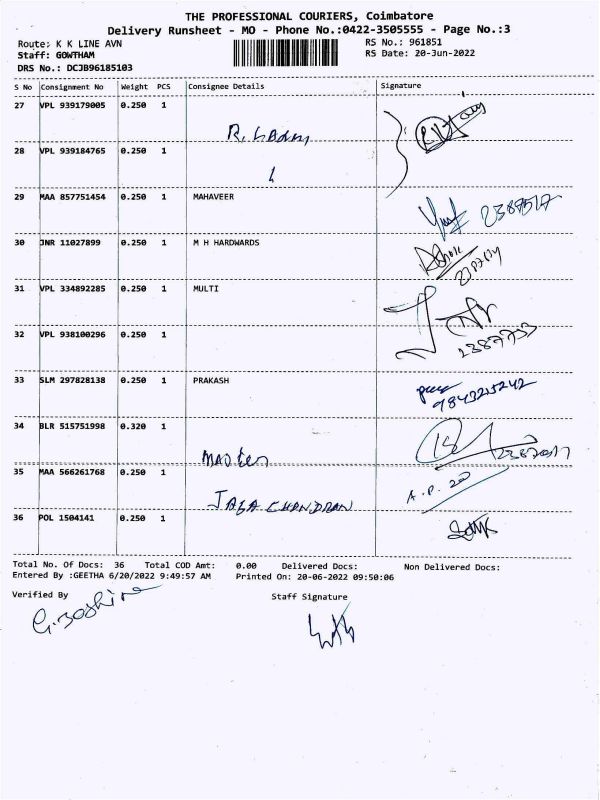 THE PROFESSIONAL COURIERS, Coimbatore
Delivery Runsheet - MO - Phone No.:0422-3505555 - Page No.:3
Route: K K LINE AVN RS No.: 961851
Staff: GOWTHAM RS Date: 20-Jun-2022
DRS No.: DCJB96185103
S No Consignment No Weight PCS Consignee Details Signature
27 VPL 939179005 0.250 1
28 VPL 939184765 0.250 1
29 MAA 857751454 0.250 1 MAHAVEER
30 JNR 11027899 0.250 1 M H HARDWARDS
31 VPL 334892285 0.250 1 MULTI
32 VPL 938100296 0.250 1
2387733
33 SLM 297828138 0.250 1 PRAKASH
9843215242
34 BLR 515751998 0.320 1
35 MAA 566261768 0.250 1 A.P. 20
CHANDRAN
36 POL 1504141 0.250 1
Total No. Of Docs: 36 Total COD Amt: 0.00 Delivered Docs: Non Delivered Docs:
Entered By :GEETHA 6/20/2022 9:49:57 AM Printed On: 20-06-2022 09:50:06
Verified By Staff Signature